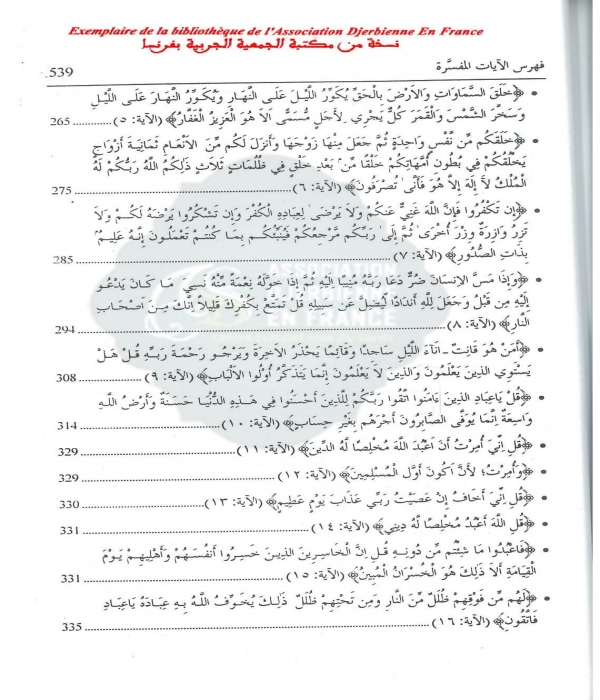 Exemplaire de la bibliothèque de l'Association Djerbienne En France
نسخة من مكتبة الجمعية الجربية بفرنسا
فهرس الآيات المفسَّرة 539
• ﴿خَلَقَ السَّمَاوَاتِ وَالاَرْضَ بِالْحَقِّ يُكَوِّرُ اللَّيْلَ عَلَى النَّهَارِ وَيُكَوِّرُ النَّهَارَ عَلَى اللَّيْلِ
وَسَخَّرَ الشَّمْسَ وَالْقَمَرَ كُلٌّ يَجْرِي لأَجَلٍ مُّسَمًّى اَلاَ هُوَ الْعَزِيزُ الْغَفَّارُ﴾ (الآية: ٥) ........ 265
• ﴿خَلَقَكُم مِّن نَّفْسٍ وَاحِدَةٍ ثُمَّ جَعَلَ مِنْهَا زَوْجَهَا وَأَنزَلَ لَكُم مِّنَ الاَنْعَامِ ثَمَانِيَةَ أَزْوَاجٍ
يَخْلُقُكُمْ فِي بُطُونِ أُمَّهَاتِكُمْ خَلْقًا مِّنْ بَعْدِ خَلْقٍ فِي ظُلُمَاتٍ ثَلاَثٍ ذَلِكُمُ اللَّهُ رَبُّكُمْ لَهُ
الْمُلْكُ لاَ إِلَهَ إِلاَّ هُوَ فَأَنَّى تُصْرَفُونَ﴾ (الآية: ٦) ........ 275
• ﴿إِن تَكْفُرُوا فَإِنَّ اللَّهَ غَنِيٌّ عَنكُمْ وَلاَ يَرْضَى لِعِبَادِهِ الْكُفْرَ وَإِن تَشْكُرُوا يَرْضَهُ لَكُمْ وَلاَ
تَزِرُ وَازِرَةٌ وِزْرَ أُخْرَى ثُمَّ إِلَى رَبِّكُم مَّرْجِعُكُمْ فَيُنَبِّئُكُم بِمَا كُنتُمْ تَعْمَلُونَ إِنَّهُ عَلِيمٌ
بِذَاتِ الصُّدُورِ﴾ (الآية: ٧) ........ 285
• ﴿وَإِذَا مَسَّ الاِنسَانَ ضُرٌّ دَعَا رَبَّهُ مُنِيبًا اِلَيْهِ ثُمَّ إِذَا خَوَّلَهُ نِعْمَةً مِّنْهُ نَسِيَ مَا كَانَ يَدْعُو
إِلَيْهِ مِن قَبْلُ وَجَعَلَ لِلَّهِ أَندَادًا لِّيُضِلَّ عَن سَبِيلِهِ قُلْ تَمَتَّعْ بِكُفْرِكَ قَلِيلاً اِنَّكَ مِنَ اَصْحَابِ
النَّارِ﴾ (الآية: ٨) ........ 294
• ﴿أَمَنْ هُوَ قَانِتٌ - انَاءَ اللَّيْلِ سَاجِدًا وَقَائِمًا يَحْذَرُ الاَخِرَةَ وَيَرْجُو رَحْمَةَ رَبِّهِ قُلْ هَلْ
يَسْتَوِي الذِينَ يَعْلَمُونَ وَالذِينَ لاَ يَعْلَمُونَ إِنَّمَا يَتَذَكَّرُ أُوْلُوا الاَلْبَابِ﴾ (الآية: ٩) ........ 308
• ﴿قُلْ يَاعِبَادِ الذِينَ ءَامَنُوا اتَّقُوا رَبَّكُمْ لِلَّذِينَ أَحْسَنُوا فِي هَذِهِ الدُّنْيَا حَسَنَةٌ وَأَرْضُ اللَّهِ
وَاسِعَةٌ اِنَّمَا يُوَفَّى الصَّابِرُونَ أَجْرَهُم بِغَيْرِ حِسَابٍ﴾ (الآية: ١٠) ........ 314
• ﴿قُلِ اِنِّيَ أُمِرْتُ أَنَ اَعْبُدَ اللَّهَ مُخْلِصًا لَّهُ الدِّينَ﴾ (الآية: ١١) ........ 329
• ﴿وَأُمِرْتُ؛ لأَنَ اَكُونَ أَوَّلَ الْمُسْلِمِينَ﴾ (الآية: ١٢) ........ 329
• ﴿قُلِ اِنِّيَ أَخَافُ إِنْ عَصَيْتُ رَبِّي عَذَابَ يَوْمٍ عَظِيمٍ﴾ (الآية: ١٣) ........ 330
• ﴿قُلِ اللَّهَ أَعْبُدُ مُخْلِصًا لَّهُ دِينِي﴾ (الآية: ١٤) ........ 331
• ﴿فَاعْبُدُوا مَا شِئْتُم مِّن دُونِهِ قُلِ اِنَّ الْخَاسِرِينَ الذِينَ خَسِرُوا أَنفُسَهُمْ وَأَهْلِيهِمْ يَوْمَ
الْقِيَامَةِ أَلاَ ذَلِكَ هُوَ الْخُسْرَانُ الْمُبِينُ﴾ (الآية: ١٥) ........ 331
• ﴿لَهُم مِّن فَوْقِهِمْ ظُلَلٌ مِّنَ النَّارِ وَمِن تَحْتِهِمْ ظُلَلٌ ذَلِكَ يُخَوِّفُ اللَّهُ بِهِ عِبَادَهُ يَاعِبَادِ
فَاتَّقُونِ﴾ (الآية: ١٦) ........ 335
ASSOCIATION
EN FRANCE